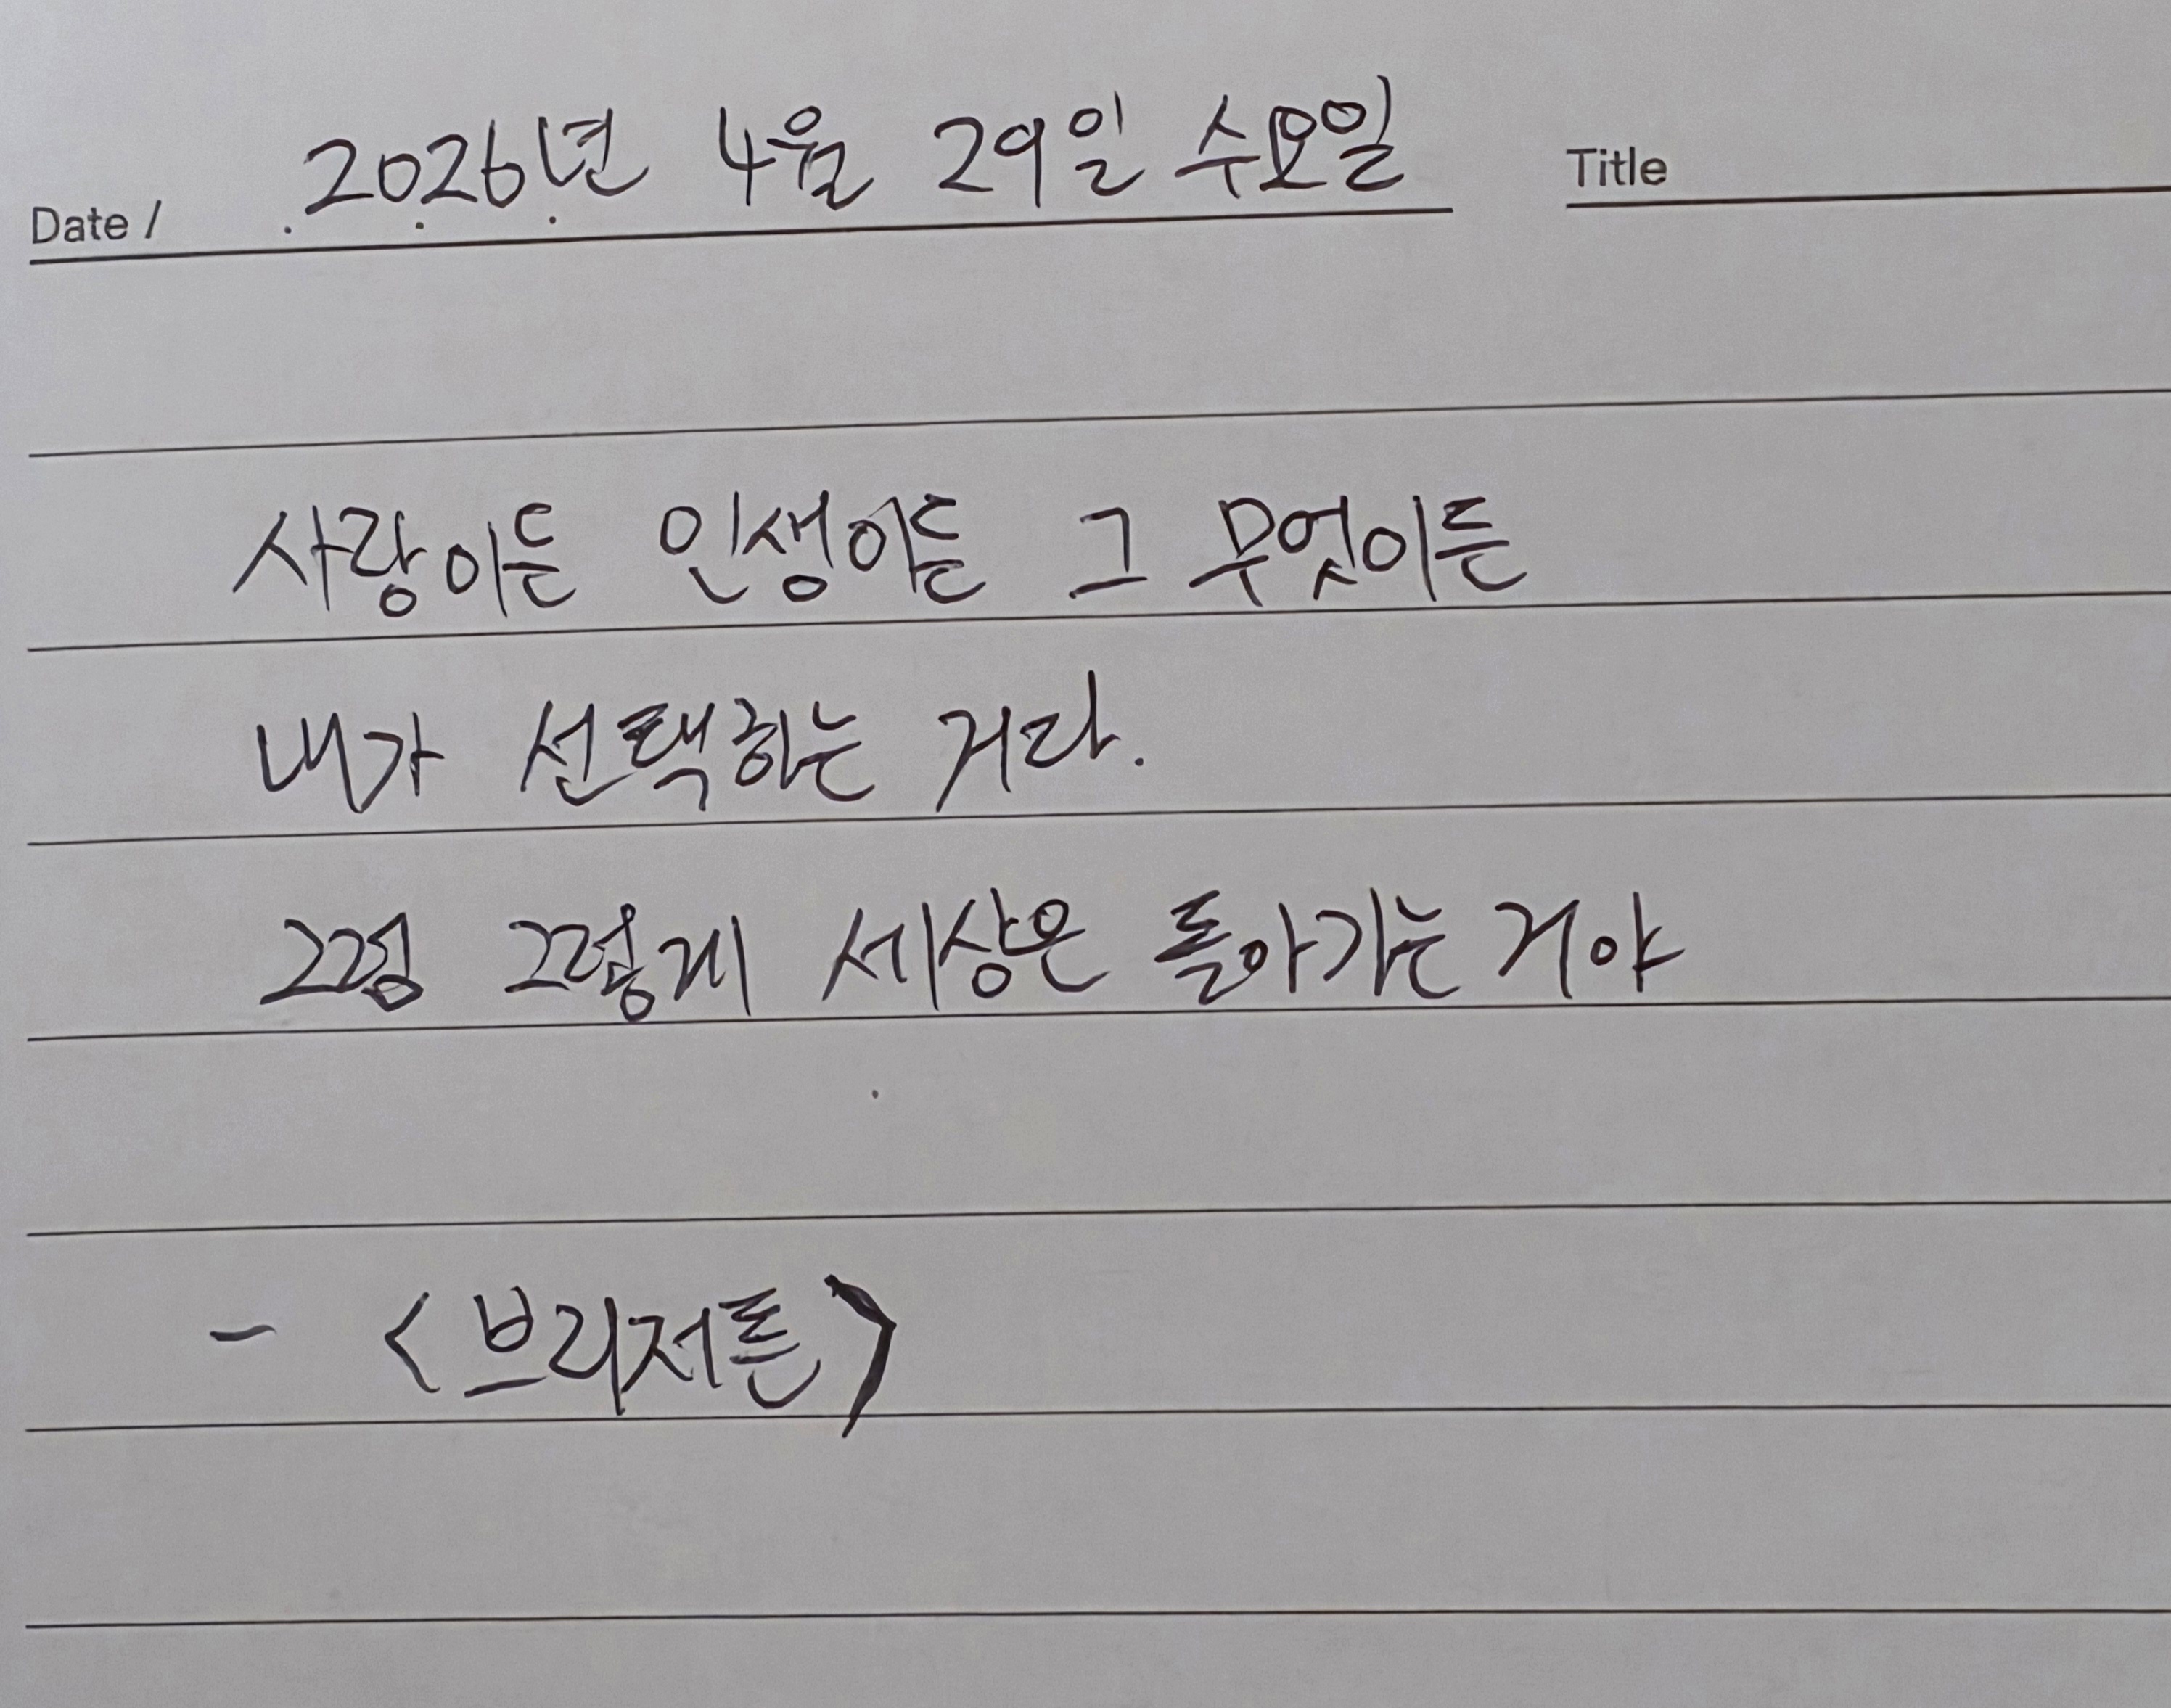 Date / 2026년 4월 29일 수요일 Title
사랑이든 인생이든 그 무엇이든
내가 선택하는 거라.
그럼 그렇게 세상은 돌아가는 거야
- <브리저튼>